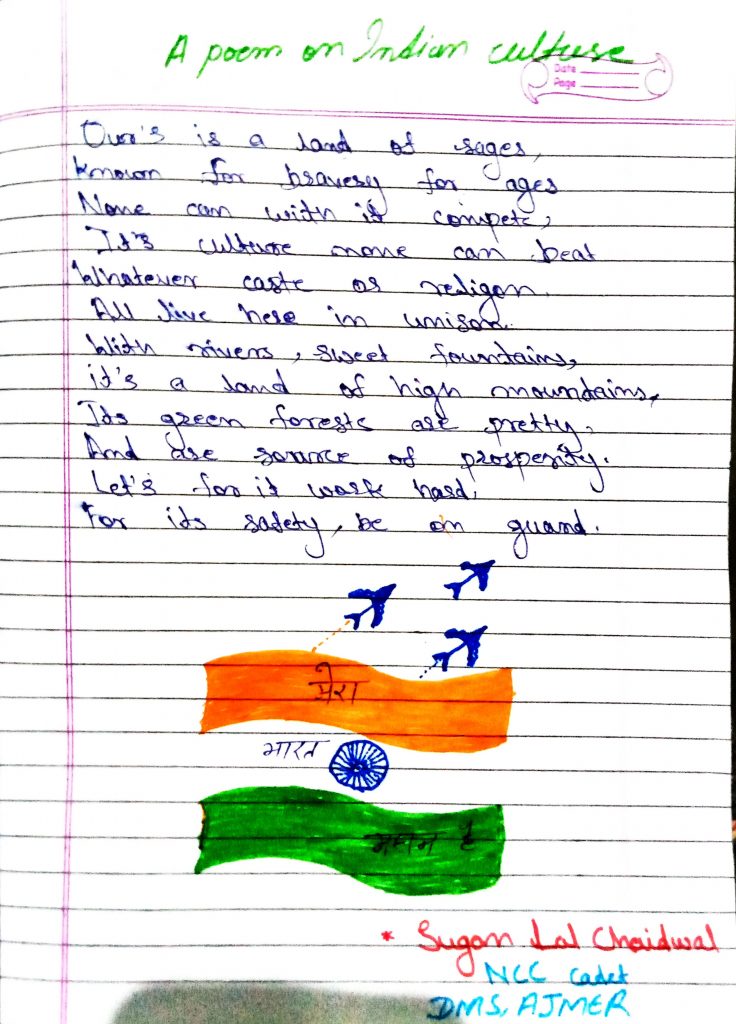 A poem on Indian culture
Date
Page
Our's is a land of sages,
known for bravery for ages
None can with it compete,
It's culture none can beat
Whatever caste or religon.
All live here in unison.
With rivers, sweet fountains,
it's a land of high mountains,
Its green forests are pretty,
And are source of prosperity.
Let's for it work hard,
For its safety, be on guard.
मेरा
भारत
महान है
* Sugan Lal Chaidwal
NCC Cadet
DMS, AJMER